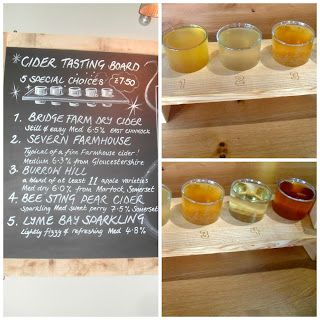 CIDER TASTING BOARD
5 SPECIAL CHOICES £7.50
1. BRIDGE FARM DRY CIDER
Still & easy Med 6.5% EAST CHINNOCK
2. SEVERN FARMHOUSE
Typical of a fine Farmhouse cider!
Medium 6.3% from Gloucestershire
3. BURROW HILL
a blend of at least 11 apple varieties
Med dry 6.0% from Martock, Somerset
4. BEE STING PEAR CIDER
Sparkling Med sweet perry 7.5% Somerset
5. LYME BAY SPARKLING
Lightly fizzy & refreshing Med 4.8%
1 2 3
3